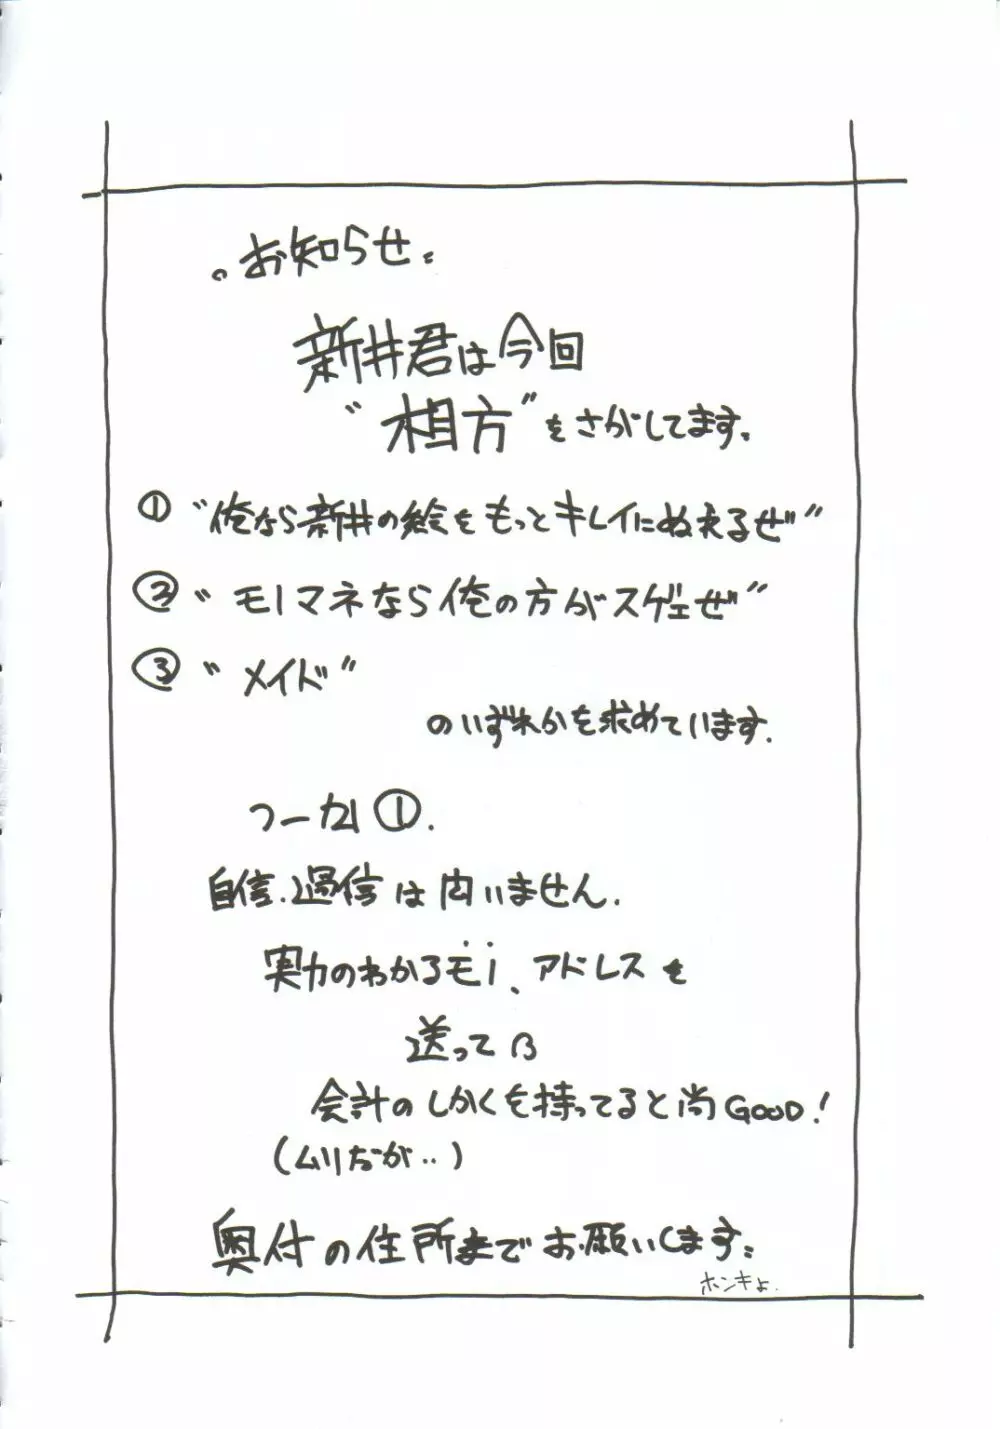 。お知らせ。
新井君は今回
“相方”をさがしてます。
① “俺なら新井の絵をもっとキレイにぬえるぜ”
② “モノマネなら俺の方がスゲェぜ”
③ “メイド”
のいずれかを求めています.
つーか①.
自信.過信は問いません.
実力のわかるモノ、アドレスを
送ってね
会計のしかくを持ってると尚GOOD!
(ムリだが..)
奥付の住所までお願いします。
ホンキよ.